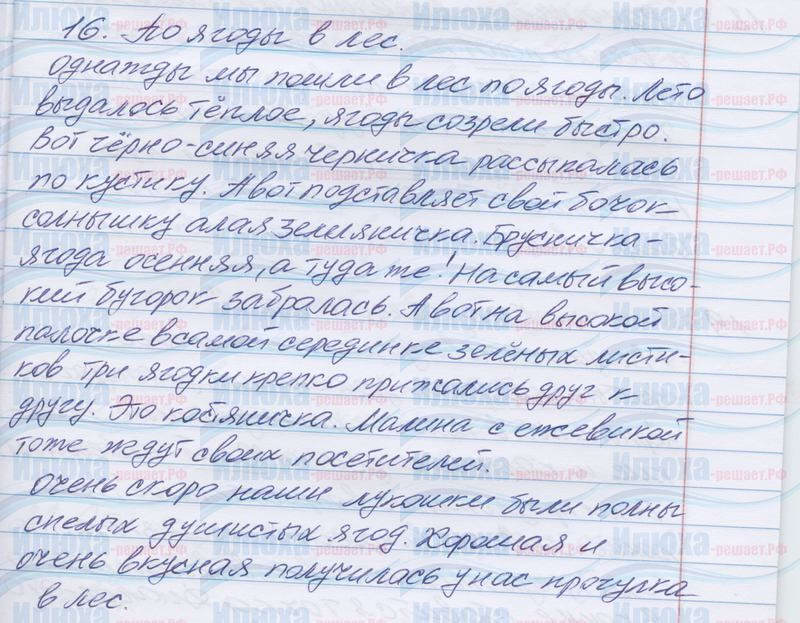 16. По ягоды в лес.
Однажды мы пошли в лес по ягоды. Лето
выдалось тёплое, ягоды созрели быстро.
Вот чёрно-синяя черничка рассыпалась
по кустику. А вот подставляет свой бочок
солнышку алая земляничка. Брусничка-
ягода осенняя, а туда же! На самый высо-
кий бугорок забралась. А вот на высокой
палочке в самой серединке зелёных листи-
ков три ягодки крепко прижались друг к
другу. Это костяничка. Малина с ежевикой
тоже ждут своих посетителей.
Очень скоро наши лукошки были полны
спелых душистых ягод. Хорошая и
очень вкусная получилась у нас прогулка
в лес.
Илюха-решает.РФ